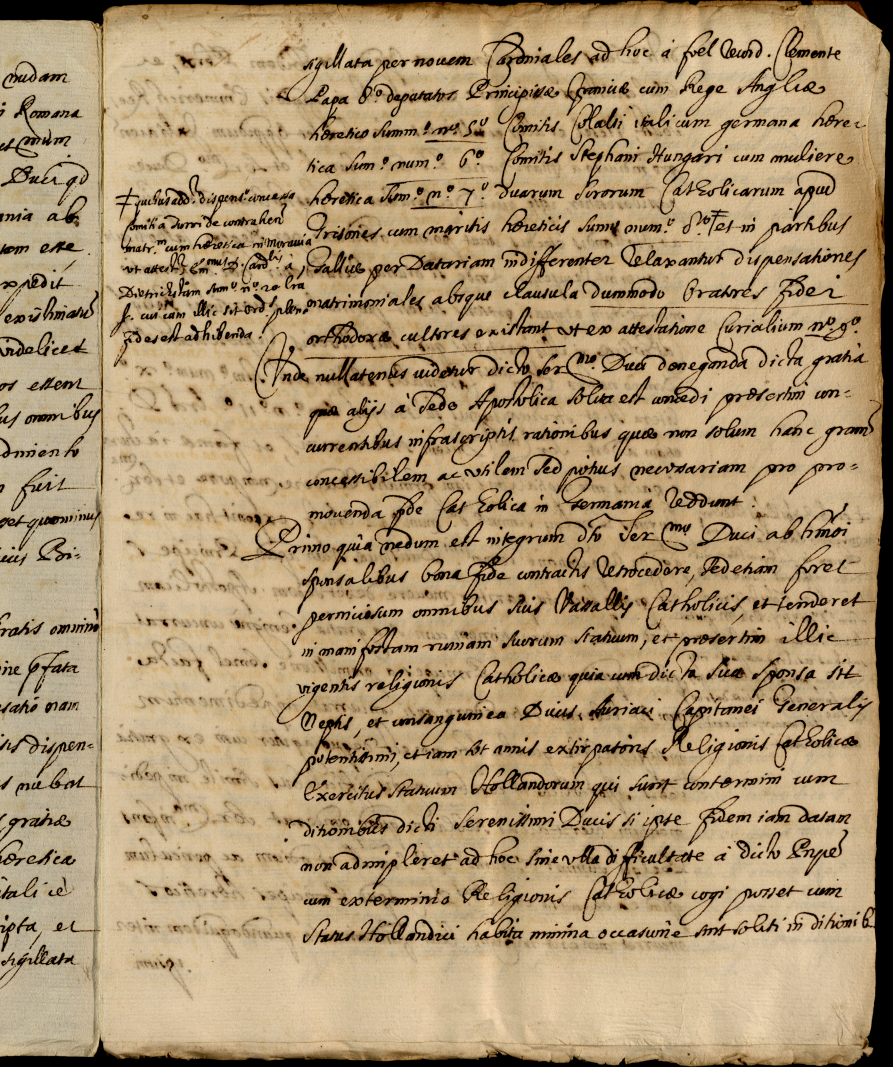 nudam
i Romana
et mum
Duci qd
ania ab
tam esse
expedit
existimatur
videlicet
os essent
us omnibus
dimento
n fuit
get quominus
cuius Poi-
gratis omnino
ine pfata
satio nam
sis dispen-
s nubat
gratiæ
hæretica
italicè
ipta, et
sigillata
sigillata per novem Cardinales ad hoc à fœl record. Clemente
Papa 8.º deputatos Principissæ Franciæ cum Rege Angliæ
hæretico summ.º nº. 5º Comitis Collalti italicum germana hære-
tica sum.º num.º 6.º Comitis Stephani Hungari cum muliere
hæretica sum.º n.º 7.º duarum sororum Catholicarum apud
Frisones cum maritis hæreticis sumº num.º 8.º ‡ et in partibus
Galliæ per Datariam indifferenter relaxantur dispensationes
matrimoniales absque clausula dummodo oratores fidei
orthodoxæ cultores existant ut ex attestatione Curialium nº. 9º.
‡ quibus add.r dispens.º concessa
Comiti a Turri de contrahen.
matr.m cum hæretica in Moravia
ut attest.r Em.mus D. Card.lis à
Dietrichstain sum.º nº. 10 
fides est adhibenda.
Unde nullatenus videtur dicto Ser.mo Duci deneganda dicta gratia
quæ alijs à Sede Apostolica solita est concedi præsertim con-
currentibus infrascriptis rationibus quæ non solum hanc gram
concessibilem ac utilem sed potius necessariam pro pro-
movenda fide Catholica in Germania reddunt.
Primo quia nedum est integrum dto Ser.mo Duci ab hmoi
sponsalibus bona fide contractis retrocedere, sed etiam foret
perniciosum omnibus suis Vasallis Catholicis, et tenderet
in manifestam ruinam suorum statuum, et præsertim illic
vigentis religionis Catholicæ quia cum dicta sua sponsa sit
Neptis, et consanguinea Ducis Auriaci Capitanei Generalis
potentissimi, et iam tot annis extirpatoris Religionis Catholicæ
Exercitus statuum Hollandorum qui sunt contermini cum
ditionibus dicti Serenissimi Ducis si ipse fidem iam datam
non adimpleret ad hoc sine ulla difficultate à dicto Pnpe
cum exterminio Religionis Catholicæ cogi posset cum
Status Hollandici habita minima occasione sint soliti in ditionib.